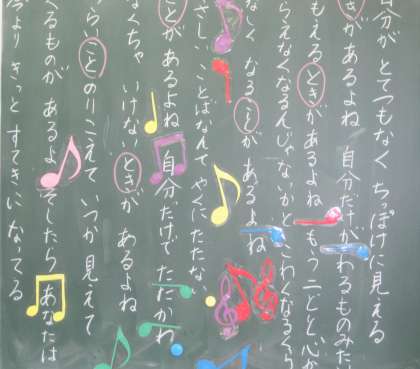 自分が とてつもなく ちっぽけに見える
きが あるよね 自分だけが わるものみたい
もえる ときがあるよね もう二どと心が
らえなくなるんじゃないかと こわくなるくら
なしく なる ときが あるよね
さしい ことばなんて やくにたたない
ことが あるよね 自分だけで たたかわ
なくちゃ いけない ときが あるよね
らい ことのりこえて いつか 見えて
くるものが あるよ そしたら あなたは
今より きっと すてきに なってる